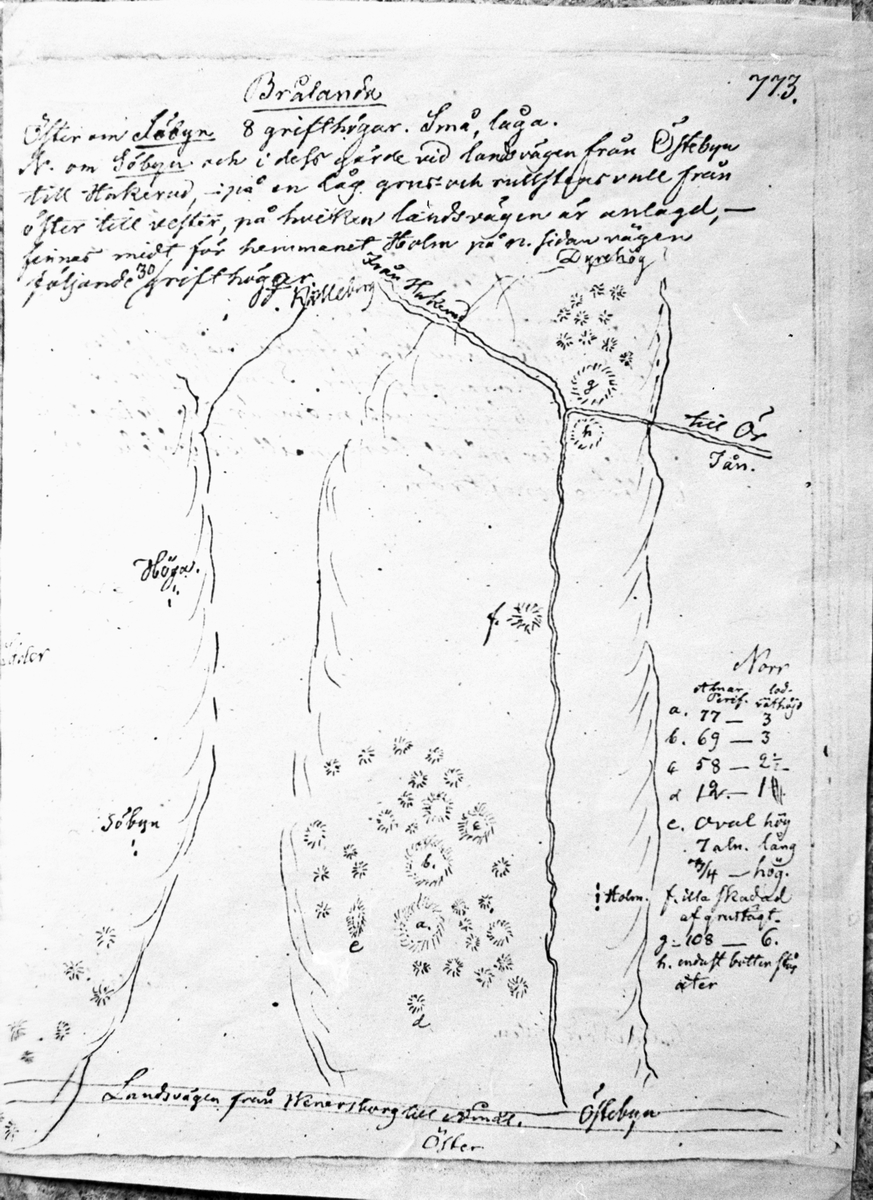 Brålanda
773.
Öster om Söbyn 8 grifthögar. Små, låga.
N. om Söbyn och i dess gärde vid landsvägen från Östebyn
till Hakerud, på en låg grus- och rullstensvall från
öster till vester, på hvilken landsvägen är anlagd, —
finnas midt för hemmanet Holm på n. sidan vägen
följande 30 grifthögar.
Kölleborg
Från Hakerud
Dyrehög
g
h
till Ör
Från.
Höga.
f.
Norr
Alnar Perif. lodrät höjd
a. 77 — 3
b. 69 — 3
c 58 — 2½
d 12 — 1
e. Oval hög
7 aln. lång
3/4 — hög.
f. illa skadad
af grustägt.
g - 108 — 6.
h. endast botten
åter
Söbyn
c
b.
a.
e
d
Holm.
Landsvägen från Wenersborg till Åmål.
Östebyn
Öster